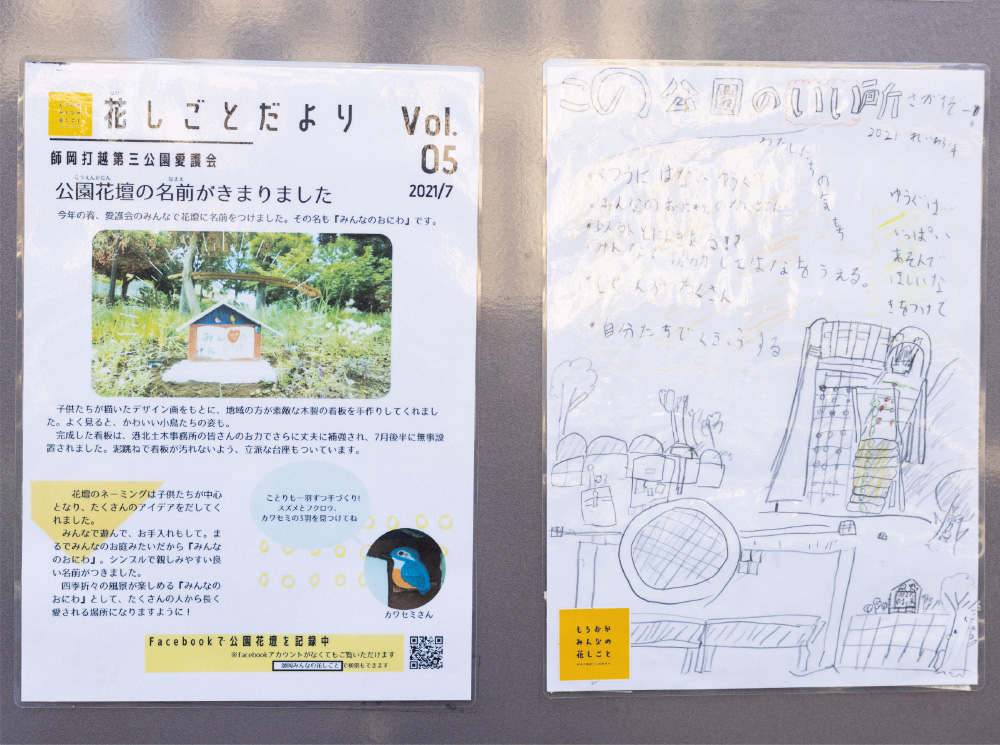 花しごとだより
はな
Vol.
05
師岡打越第三公園愛護会
2021/7
こうえんかだん なまえ
公園花壇の名前がきまりました
今年の春、愛護会のみんなで花壇に名前をつけました。その名も『みんなのおにわ』です。
子供たちが描いたデザイン画をもとに、地域の方が素敵な木製の看板を手作りしてくれまし
た。よく見ると、かわいい小鳥たちの姿も。
完成した看板は、港北土木事務所の皆さんのお力でさらに丈夫に補強され、7月後半に無事設
置されました。泥跳ねで看板が汚れないよう、立派な台座もついています。
花壇のネーミングは子供たちが中心
となり、たくさんのアイデアをだしてく
れました。
みんなで遊んで、お手入れもして。ま
るでみんなのお庭みたいだから『みんな
のおにわ』。シンプルで親しみやすい良
い名前がつきました。
四季折々の風景が楽しめる『みんなの
おにわ』として、たくさんの人から長く
愛される場所になりますように！
ことりも一羽ずつ手づくり!
スズメとフクロウ、
カワセミの3羽を見つけてね
カワセミさん
Facebookで公園花壇を記録中
※facebookアカウントがなくてもご覧いただけます
師岡みんなの花しごと で検索もできます
この公園のいい所 さがそー!
2021 れいわ3年
わたしたちの気もち
・ふつうにはないゆうぐ
・みんなの
みんなで協力してはなをうえる。
・しぜんがたくさん
・自分たちで する
ゆうぐは…
いっぱい
あそんで
ほしいな
きをつけて
もろおか
みんなの
花しごと